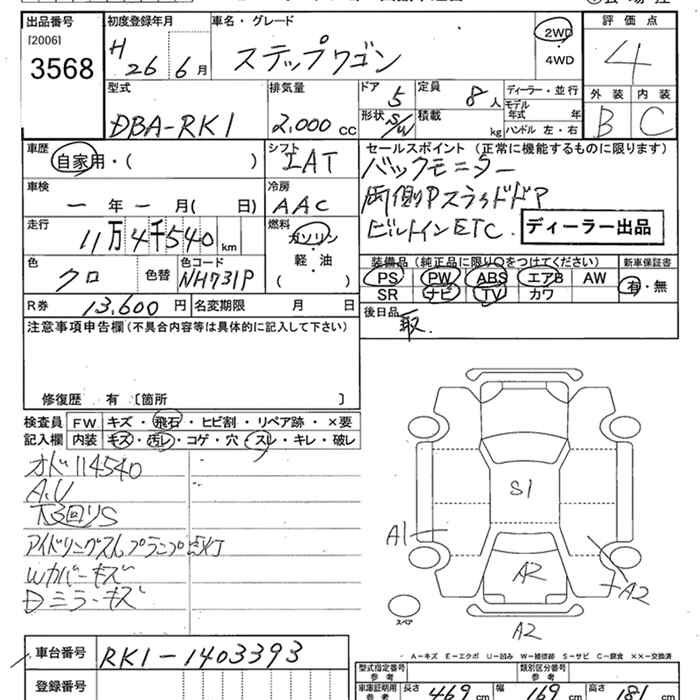 出品番号 初度登録年月 車名・グレード 評価点
[2006] 3568 H26 6月 ステップワゴン 2WD・4WD 4
型式 排気量 ドア 5 定員 8人 ディーラー・並行 外装 内装
DBA-RK1 2,000cc 形状 S/W 積載 kg モデル年式 年 ハンドル 左・右 B C
車歴 シフト セールスポイント (正常に機能するものに限ります)
自家用・( ) IAT バックモニター
車検 冷房 両側Pスライドドア
ー年ー月( 日) AAC ビルトインETC ディーラー出品
走行 燃料
11万4千540km ガソリン・軽・油 ( )
色 色替 色コード 装備品 (純正品に限り○をつけてください) 新車保証書
クロ NH731P PS PW ABS エアB AW 有・無
SR ナビ TV カワ
R券 13,600円 名変期限 月 日 後日品 取.
注意事項申告欄(不具合内容等は具体的に記入して下さい)
修復歴 有 〔箇所 〕
検査員 FW キズ・飛石・ヒビ割・リペア跡・×要
記入欄 内装 キズ・汚レ・コゲ・穴・スレ・キレ・破レ
オド114540
A.U
下回りS
アイドリングストップランプ点灯
Wカバーキズ
Dミラーキズ
S1
A1
A2
A2
A2
スペア
A-キズ E-エクボ U-凹み W-補修跡 S-サビ C-腐食 XX-交換済
車台番号 RK1-1403393
登録番号
型式指定番号 参考 類別区分番号 参考
車庫証明用 参考 長さ 469cm 幅 169cm 高さ 181cm